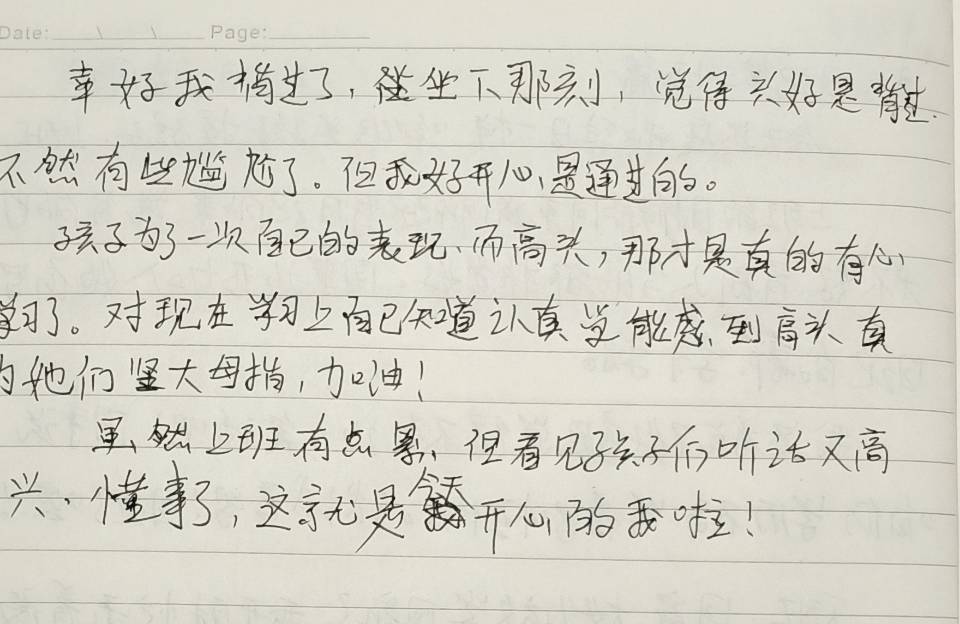 Date: \ \ Page:
幸好我猜过了,从坐下那刻,觉得兴好是背过.
不然有些尴尬了。但我好开心,是通过的。
孩子为了一次自己的表现、而高兴,那才是真的有心
学习了。对现在学习上自己知道认真学能感到高兴真
为她们竖大母指,加油!
虽然上班有点累、但看见孩子们听话又高
兴、懂事了,这就是今天开心的我啦!